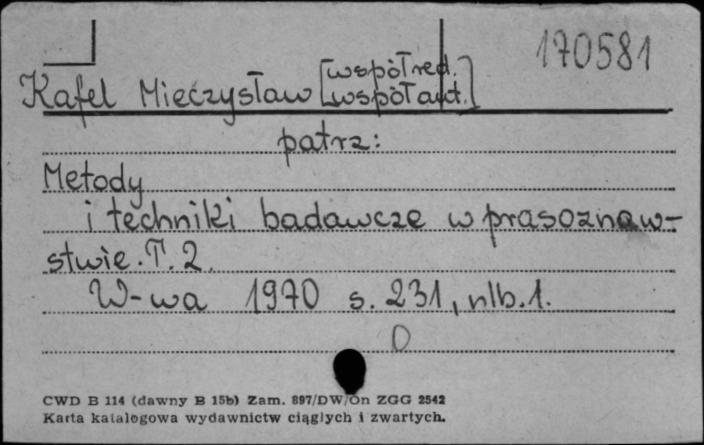 170581
Kafel Mieczysław [współred.
współaut.]
patrz:
Metody
i techniki badawcze w prasoznaw-
stwie. T. 2.
W-wa 1970 s. 231, nlb. 1.
0
CWD B 114 (dawny B 15b) Zam. 897/DW/On ZGG 2542
Karta katalogowa wydawnictw ciągłych i zwartych.